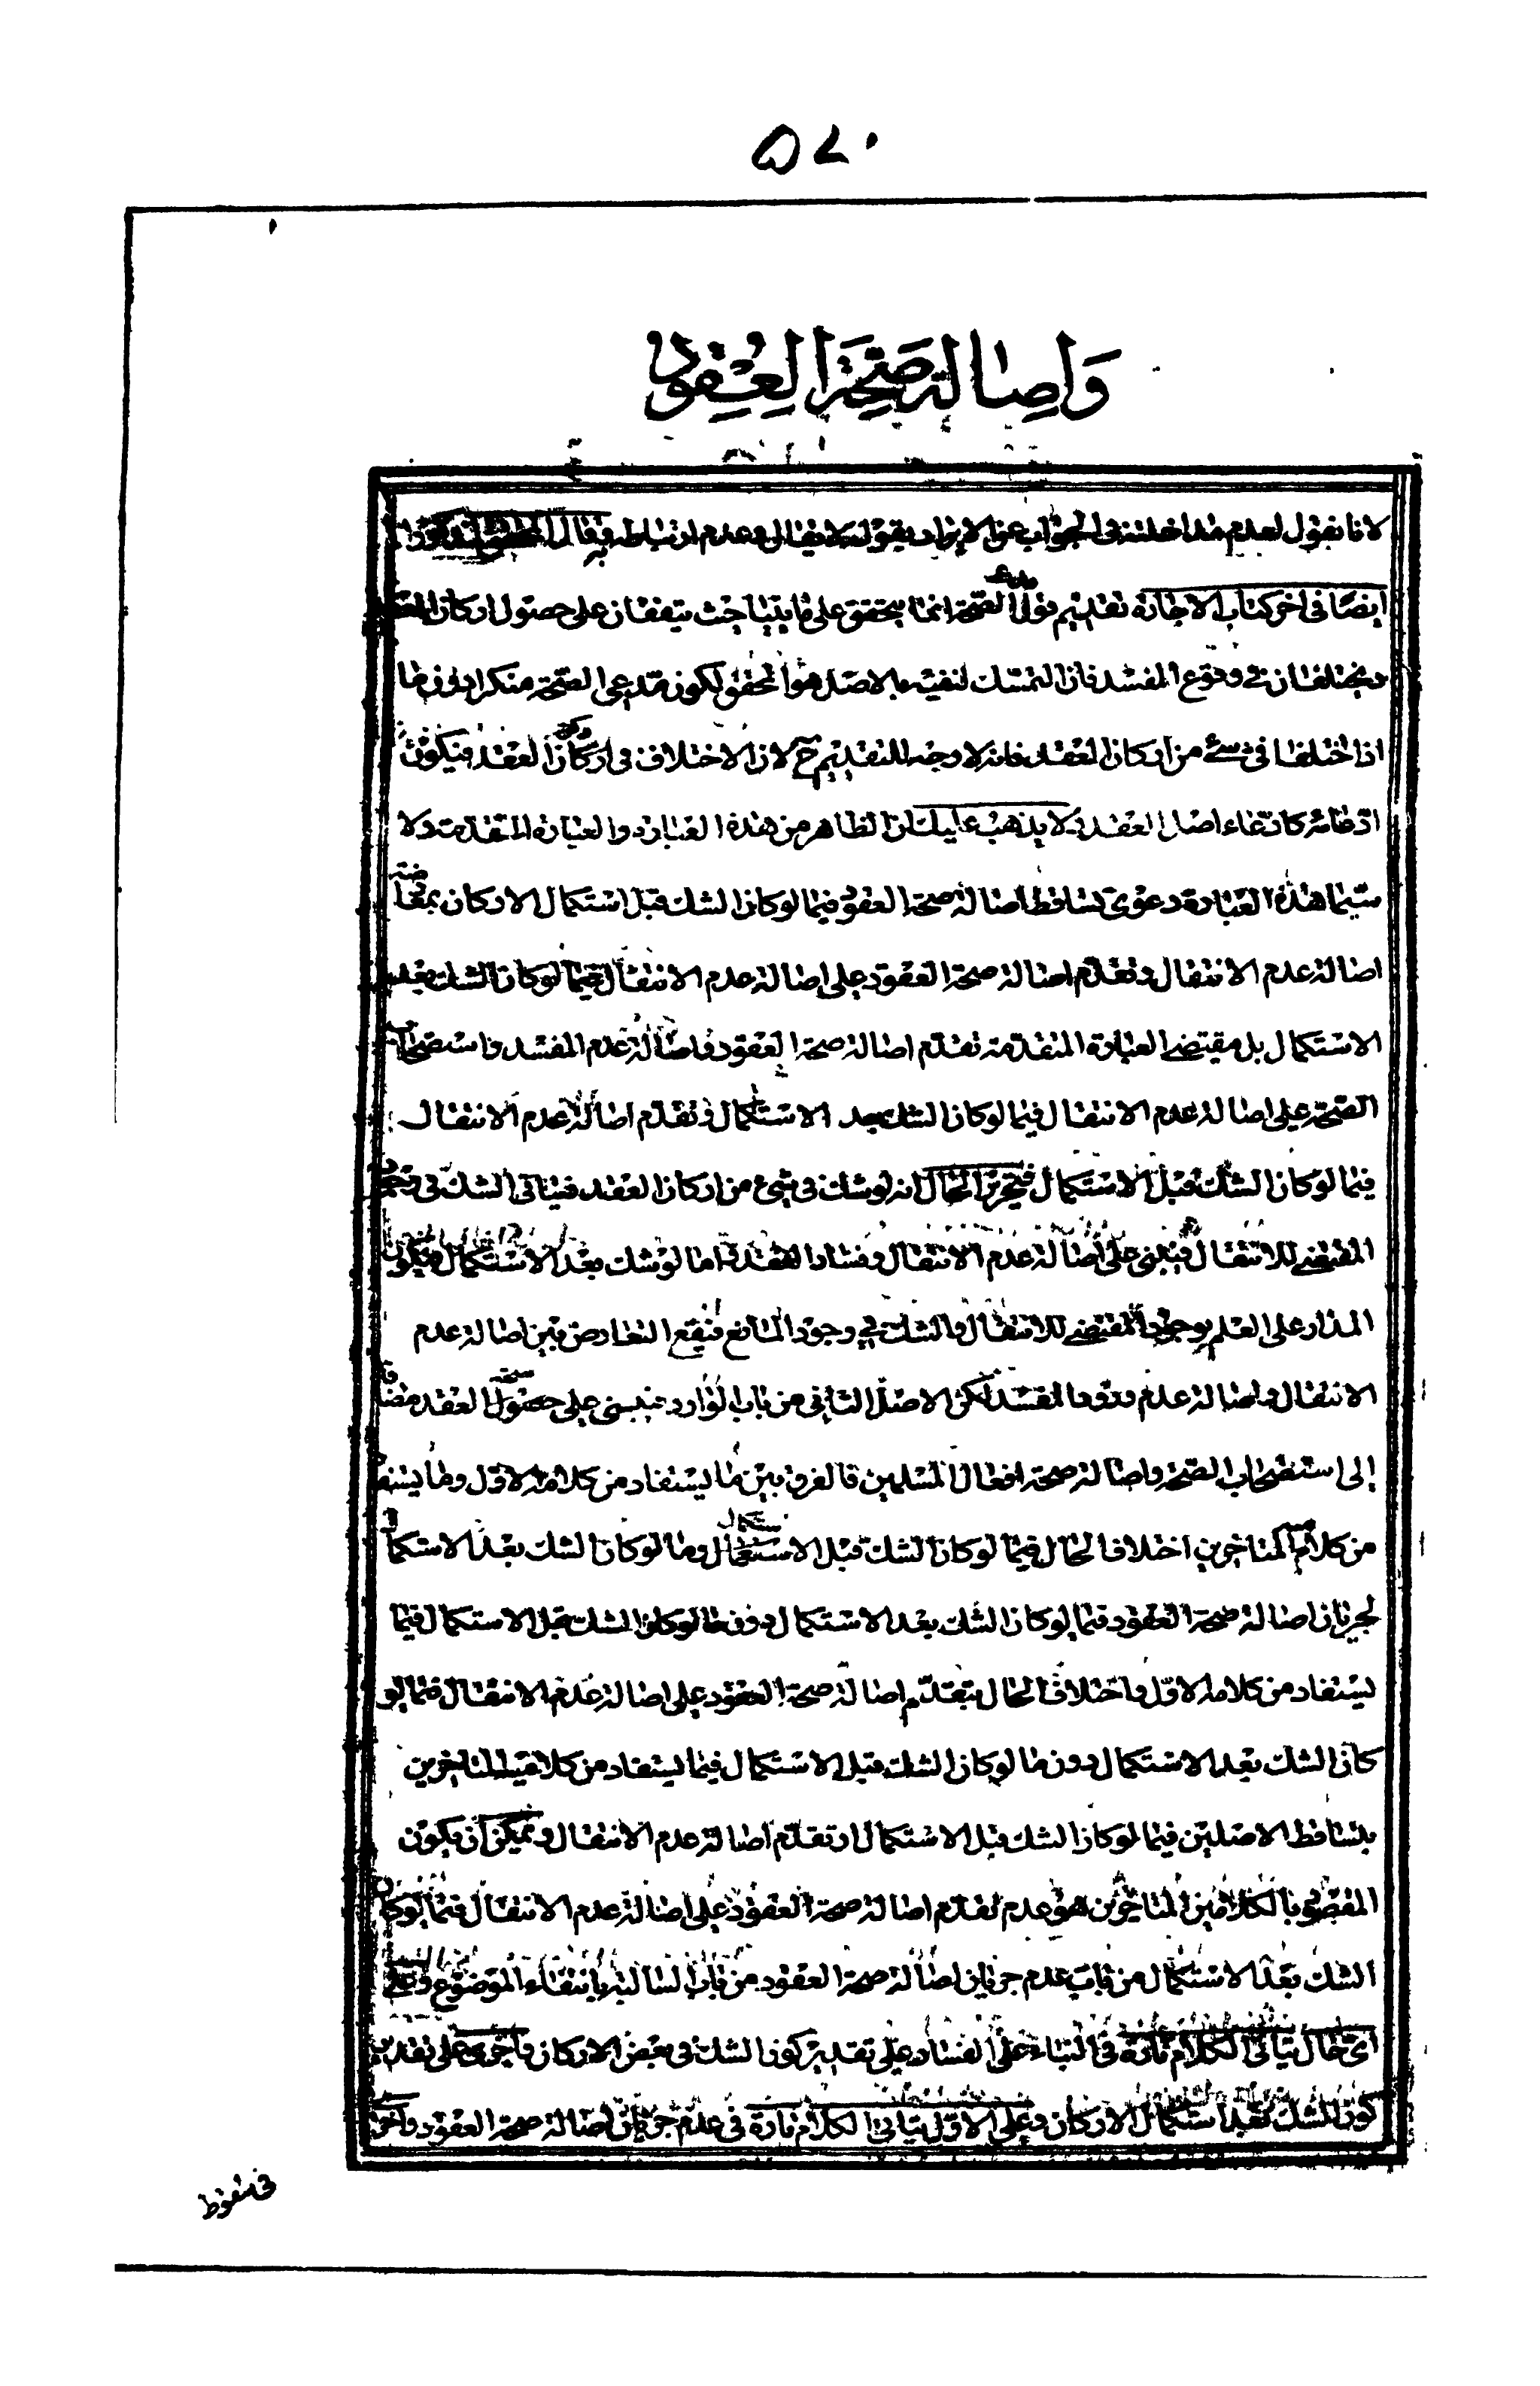 ٥٧٠
واصالة صحة العقود
لانا نقول لعدم مداخلته فى الجواب عن الايراد بقوله لا يقال وعدم ارتباطه فيقال
ايضا فى اخر كتاب الاجارة تقديم قول مدعى الصحة انما يتحقق على ما بينا حيث يتفقان على حصول اركان العقد
ويختلفان فى وقوع المفسد فان التمسك لنفيه بالاصل هو المحقق لكون مدعى الصحة منكرا دون ما
اذا اختلفا فى شئ من اركان العقد فانه لا وجه للتقديم ح لان الاختلاف فى اركان العقد فيكون
ادعائه كادعاء اصل العقد ولا يذهب عليك ان الظاهر من هذه العبارة والعبارة المتقدمة ولا
سيما هذه العبارة دعوى تساقط اصالة صحة العقود فيما لو كان الشك قبل استكمال الاركان بمعارضة
اصالة عدم الانتقال وتقدم اصالة صحة العقود على اصالة عدم الانتقال فيما لو كان الشك بعد
الاستكمال بل مقتضى العبارة المتقدمة تقدم اصالة صحة العقود واصالة عدم المفسد واستصحاب
الصحة على اصالة عدم الانتقال فيما لو كان الشك بعد الاستكمال وتقدم اصالة عدم الانتقال
فيما لو كان الشك قبل الاستكمال فتحرير الحال انه لو شك فى شئ من اركان العقد فيتاتى الشك فى وجود
المقتضى للانتقال فيبنى على اصالة عدم الانتقال وفساد العقد واما لو شك بعد الاستكمال فيكون
المدار على العلم بوجود المقتضى للانتقال والشك فى وجود المانع فيقع التعارض بين اصالة عدم
الانتقال واصالة عدم وقوع المفسد لكن الاصل الثانى من باب الوارد فيبنى على حصول العقد مضافا
الى استصحاب الصحة واصالة صحة افعال المسلمين فالفرق بين ما يستفاد من كلامه الاول وما يستفاد
من كلاميه المتاخرين اختلاف الحال فيما لو كان الشك قبل الاستكمال وما لو كان الشك بعد الاستكمال
لجريان اصالة صحة العقود فيما لو كان الشك بعد الاستكمال دون ما لو كان الشك قبل الاستكمال فيما
يستفاد من كلامه الاول واختلاف الحال بتقدم اصالة صحة العقود على اصالة عدم الانتقال فيما لو
كان الشك بعد الاستكمال دون ما لو كان الشك قبل الاستكمال فيما يستفاد من كلاميه المتاخرين
بتساقط الاصلين فيما لو كان الشك قبل الاستكمال او تقدم اصالة عدم الانتقال ويمكن ان يكون
المقصود بالكلامين المتاخرين هو عدم تقدم اصالة صحة العقود على اصالة عدم الانتقال فيما لو كان
الشك بعد الاستكمال من باب عدم جريان اصالة صحة العقود من باب السالبة بانتفاء الموضوع وعلى
اى حال يتاتى الكلام تارة فى البناء على الفساد على تقدير كون الشك فى بعض الاركان واخرى على تقدير
كون الشك بعد استكمال الاركان وعلى الاول يتاتى الكلام تارة فى عدم جريان اصالة صحة العقود واخرى
فى سقوط